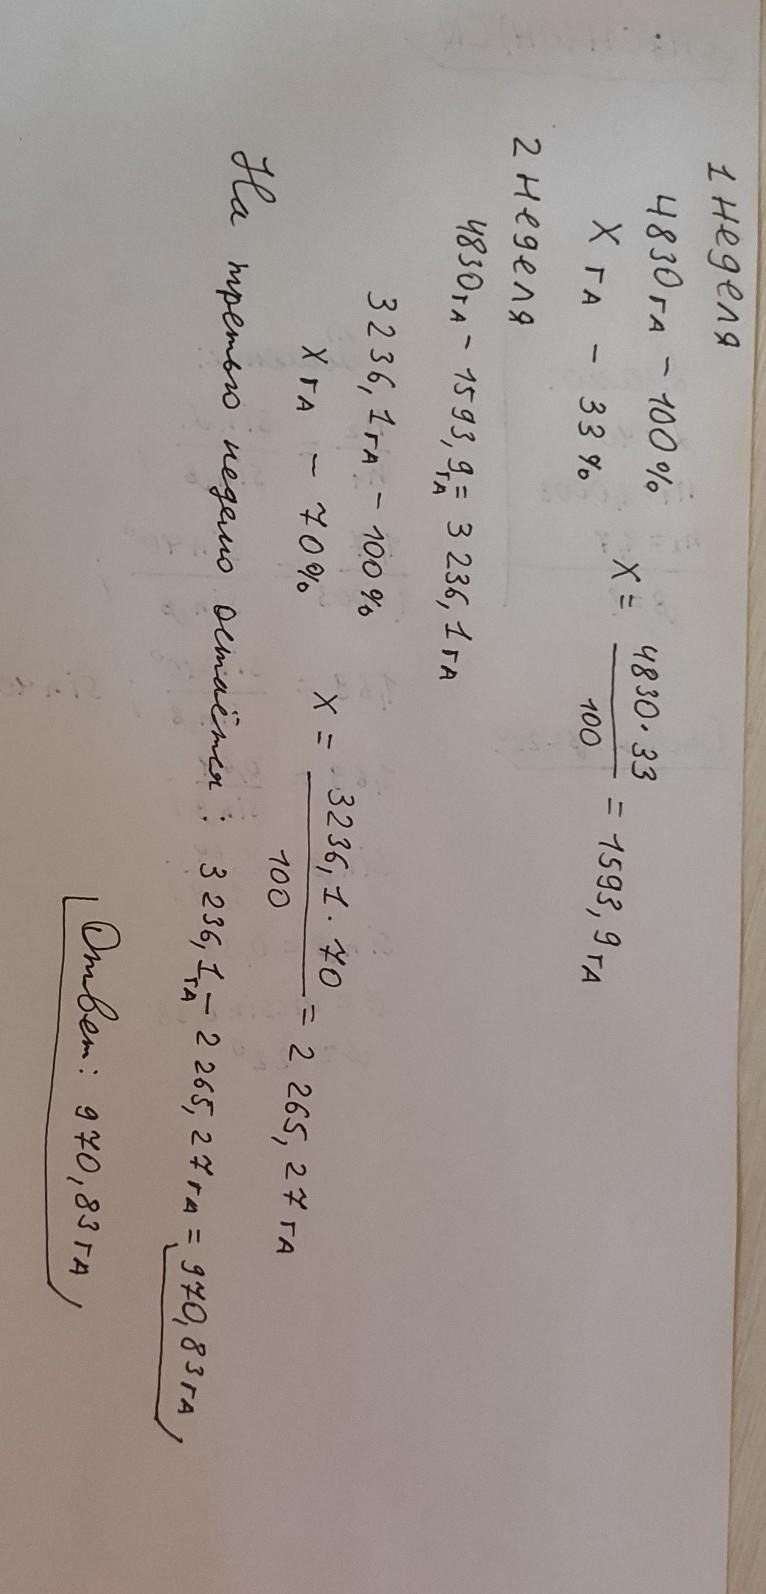 1 неделя
4830 га - 100%
X га - 33%
X = 4830·33
100
= 1593,9 га
2 неделя
4830 га - 1593,9 га = 3236,1 га
3236,1 га - 100%
X га - 70%
X = 3236,1·70
100
= 2265,27 га
На третью неделю остаётся: 3236,1 га - 2265,27 га = 970,83 га
Ответ: 970,83 га